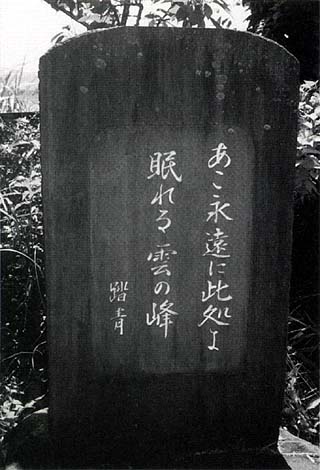 あこ永遠に此処に
眠れる雲の峰
踏青